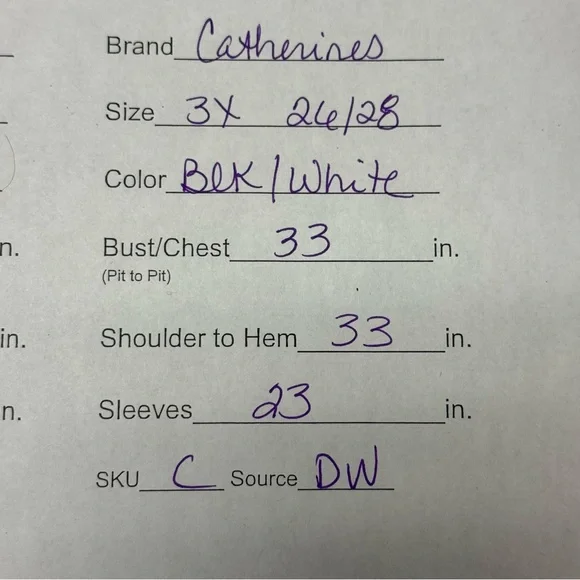 Brand Catherines
Size 3X 26/28
Color BLK/White
n. Bust/Chest 33 in.
(Pit to Pit)
in. Shoulder to Hem 33 in.
n. Sleeves 23 in.
SKU C Source DW